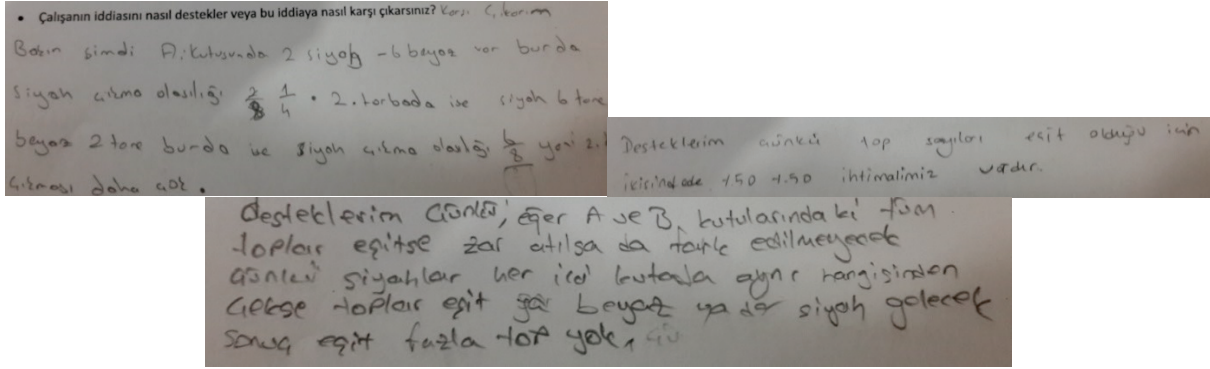 • Çalışanın iddiasını nasıl destekler veya bu iddiaya nasıl karşı çıkarsınız? Karşı Çıkarım
Bakın şimdi A. kutusunda 2 siyah - 6 beyaz var burda
siyah çıkma olasılığı 2/8 1/4 . 2. torbada ise siyah 6 tane
beyaz 2 tane burda ise siyah çıkma olasılığı 6/8 yani 2.
çıkması daha çok.
Desteklerim çünkü top sayıları eşit olduğu için
ikisindede %50 %50 ihtimalimiz vardır.
desteklerim Çünkü, eğer A ve B kutularındaki tüm
toplar eşitse zar atılsa da fark edilmeyecek
Çünkü siyahlar her iki kutuda aynı hangisinden
Gelse toplar eşit beyaz ya da siyah gelecek
sonuç eşit fazla top yok,